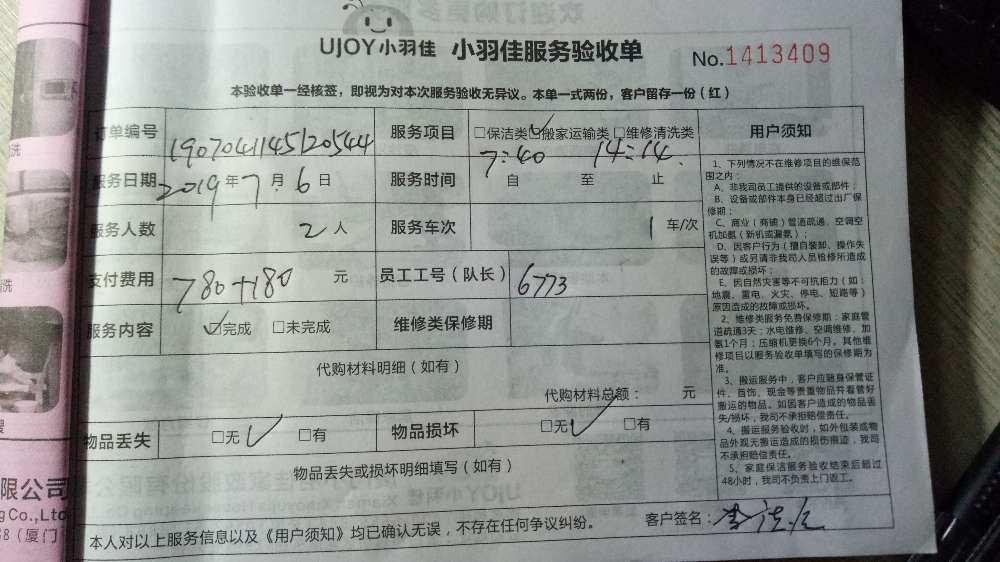 UJOY小羽佳 小羽佳服务验收单 No.1413409
本验收单一经核签，即视为对本次服务验收无异议。本单一式两份，客户留存一份（红）
订单编号 1907041145120544 服务项目 □保洁类 ☑搬家运输类 □维修清洗类
服务日期 2019年7月6日 服务时间 7:40 14:14
自 至 止
服务人数 2人 服务车次 1车/次
支付费用 780+180 元 员工工号（队长） 6773
服务内容 ☑完成 □未完成 维修类保修期
代购材料明细（如有）
代购材料总额： 元
物品丢失 □无√ □有 物品损坏 □无√ □有
物品丢失或损坏明细填写（如有）
本人对以上服务信息以及《用户须知》均已确认无误，不存在任何争议纠纷。 客户签名：
用户须知
1、下列情况不在维修项目的维保范
围之内：
A、非我司员工提供的设备或部件；
B、设备或部件本身已经超过出厂保
修期；
C、商业（商铺）管道疏通、空调空
机加氨（新机或漏氨）；
D、因客户行为（擅自装卸、操作失
误等）或另请非我司人员检修所造成
的故障或损坏；
E、因自然灾害等不可抗拒力（如：
地震、雷电、火灾、停电、短路等）
原因造成的故障或损坏。
2、维修类服务免费保修期：家庭管
道疏通3天；水电维修、空调维修、加
氨1个月；压缩机更换6个月。其他维
修项目以服务验收单填写的保修期为
准。
3、搬运服务中，客户应随身保管证
件、首饰、现金等贵重物品并看管好
搬运的物品。如因客户造成的物品丢
失/损坏，我司不承担赔偿责任。
4、搬运服务验收时，如外包装或物
品外观无搬运造成的损伤痕迹，我司
不承担赔偿责任。
5、家庭保洁服务验收结束后超过
48小时，我司不负责上门返工。
限公司
gCo.,Ltd
（厦门